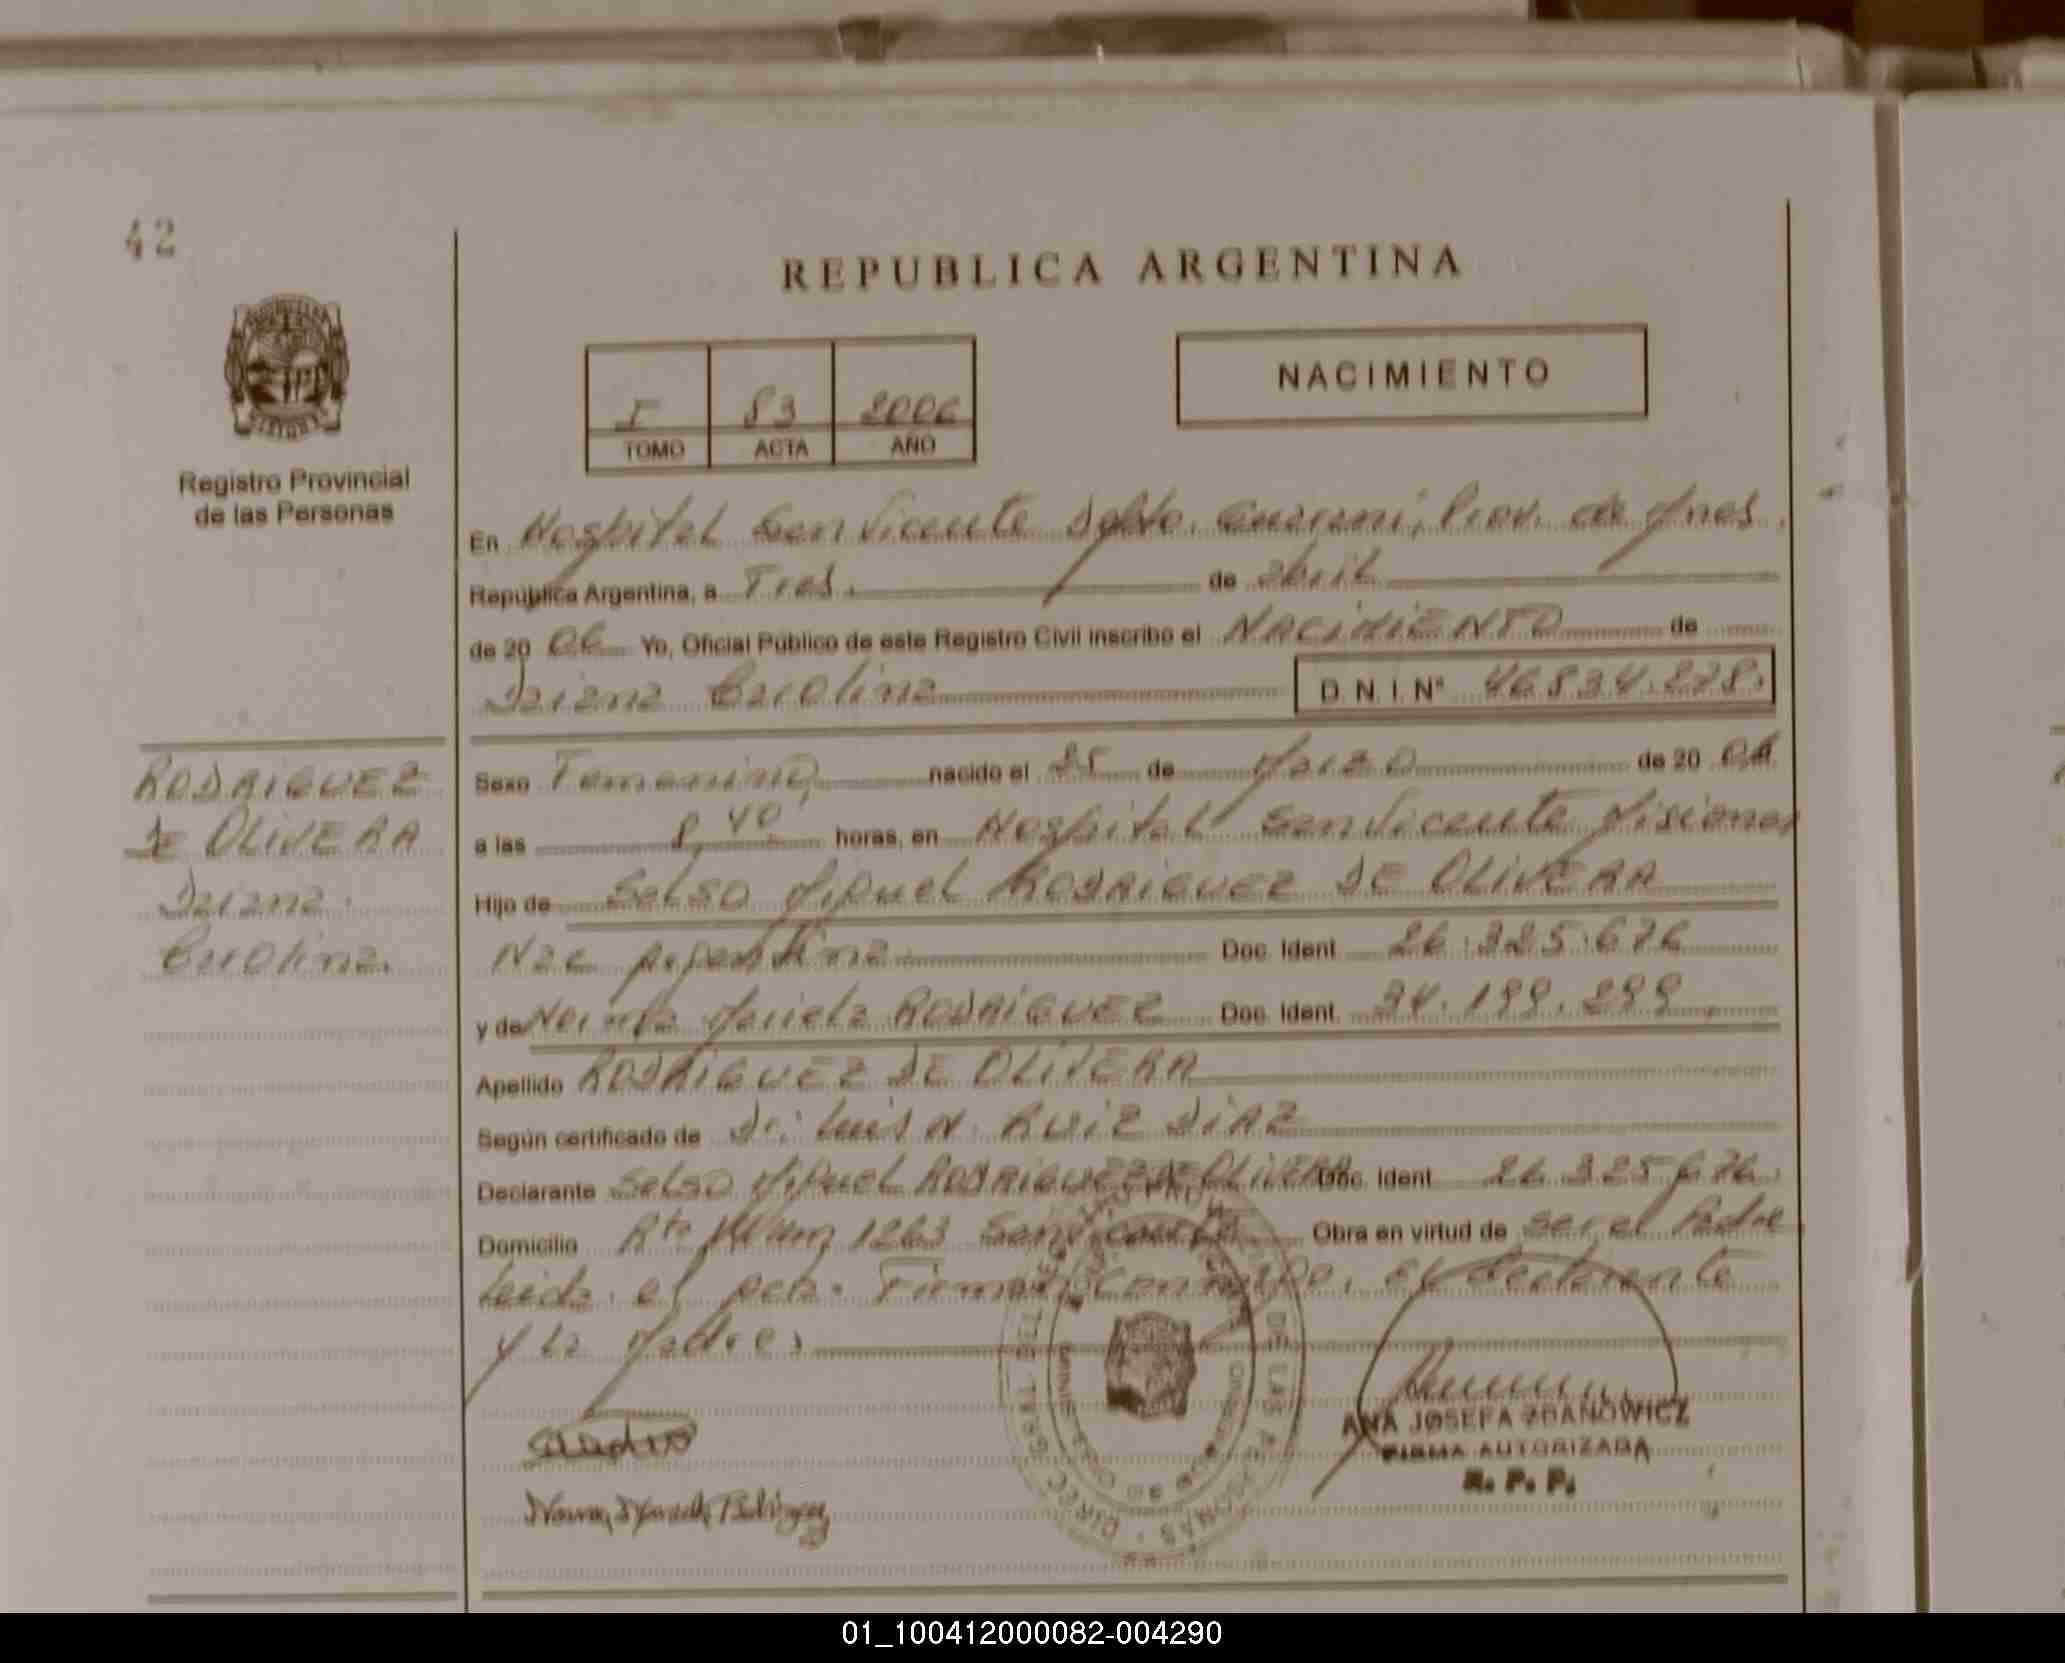 42
REPUBLICA ARGENTINA
I 83 2006
TOMO ACTA AÑO
NACIMIENTO
Registro Provincial
de las Personas
En Hospital San Vicente Dpto. Guarani, Prov. de Mnes.
República Argentina, a Tres. de abril
de 20 06 Yo, Oficial Público de este Registro Civil inscribo el NACIMIENTO de
Daiana Carolina D.N.I. Nº 46.834.278.
RODRIGUEZ
DE OLIVERA
Daiana.
Carolina.
Sexo Femenino nacido el 25 de Marzo de 20 06
a las 8,40 horas, en Hospital San Vicente Misiones
Hijo de Selso Miguel RODRIGUEZ DE OLIVERA
Nac Argentina Doc. Ident. 26.325.676
y de Norma Mariela RODRIGUEZ Doc. Ident. 34.199.299
Apellido RODRIGUEZ DE OLIVERA
Según certificado de Dr. Luis N. RUIZ DIAZ
Declarante Selso Miguel RODRIGUEZ DE OLIVERA Doc. Ident. 26.325.676.
Domicilio Rta 1263 San Vicente Obra en virtud de ser el Padre
Leida el acta. Firman Conmigo, el declarante
y la Madre.
ANA JOSEFA ZDANOWICZ
FIRMA AUTORIZADA
R. P. P.
01_100412000082-004290